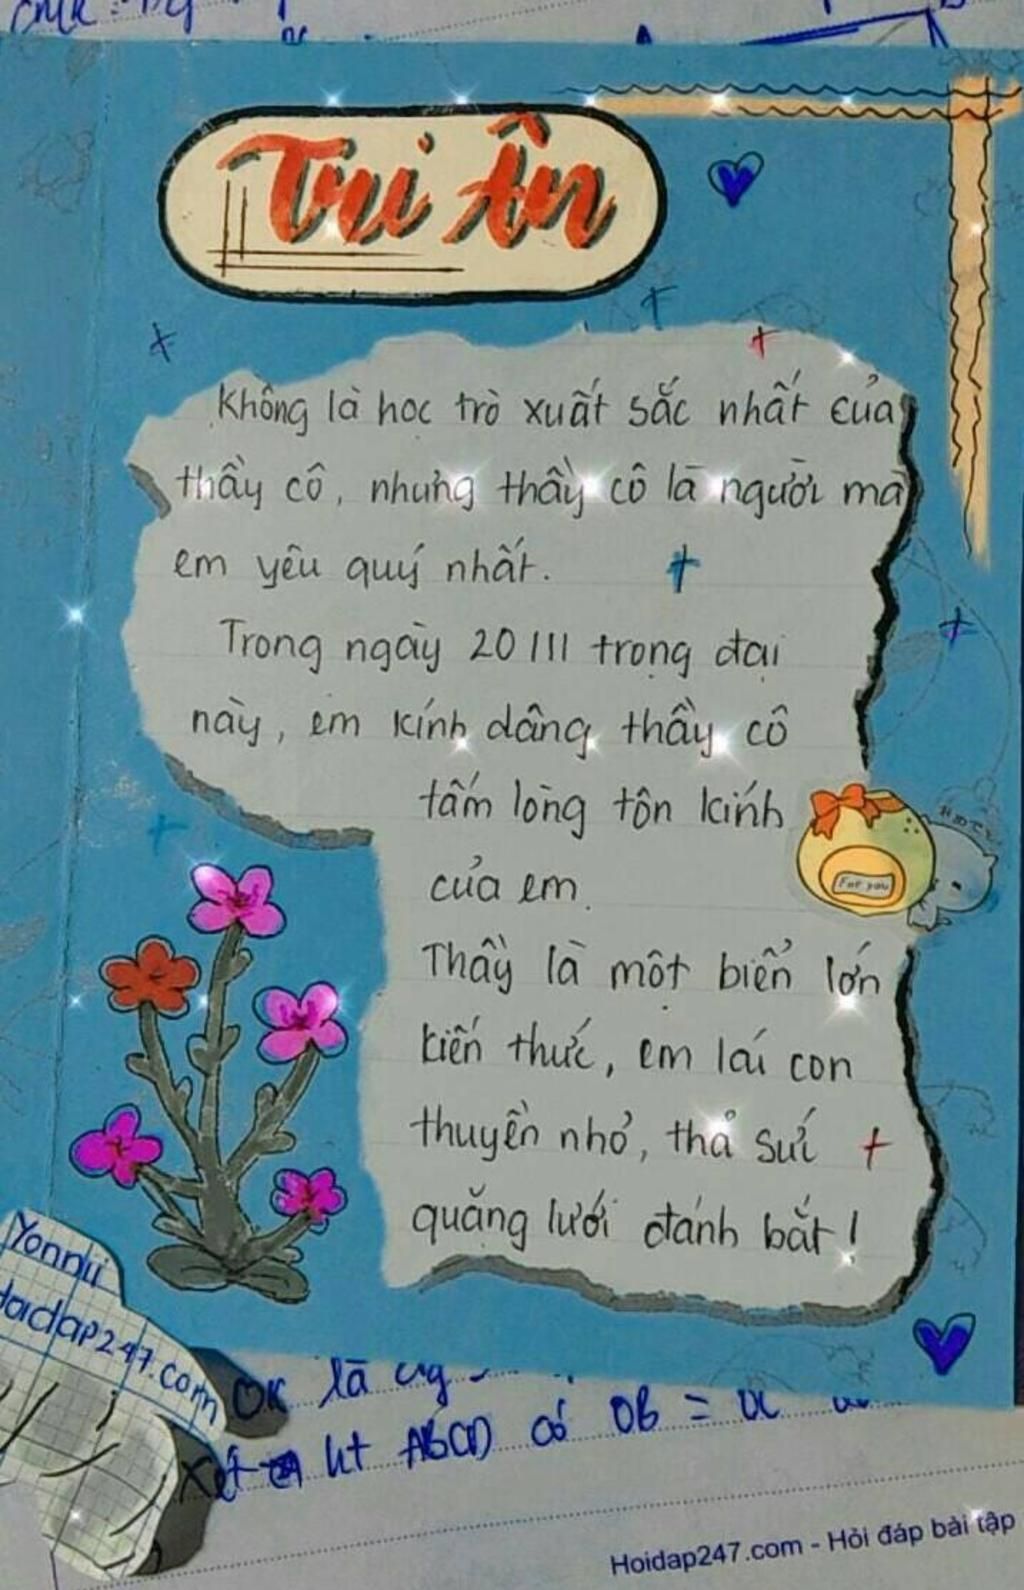 Tri Ân
Không là học trò xuất sắc nhất của
thầy cô, nhưng thầy cô là người mà
em yêu quý nhất.
Trong ngày 20/11 trọng đại
này, em kính dâng thầy cô
tấm lòng tôn kính
của em.
Thầy là một biển lớn
kiến thức, em lái con
thuyền nhỏ, thả sức
quăng lưới đánh bắt!
For you
Yonnii
Hoidap247.com
OK là
Xét ht ABCD có OB = OC
Hoidap247.com - Hỏi đáp bài tập